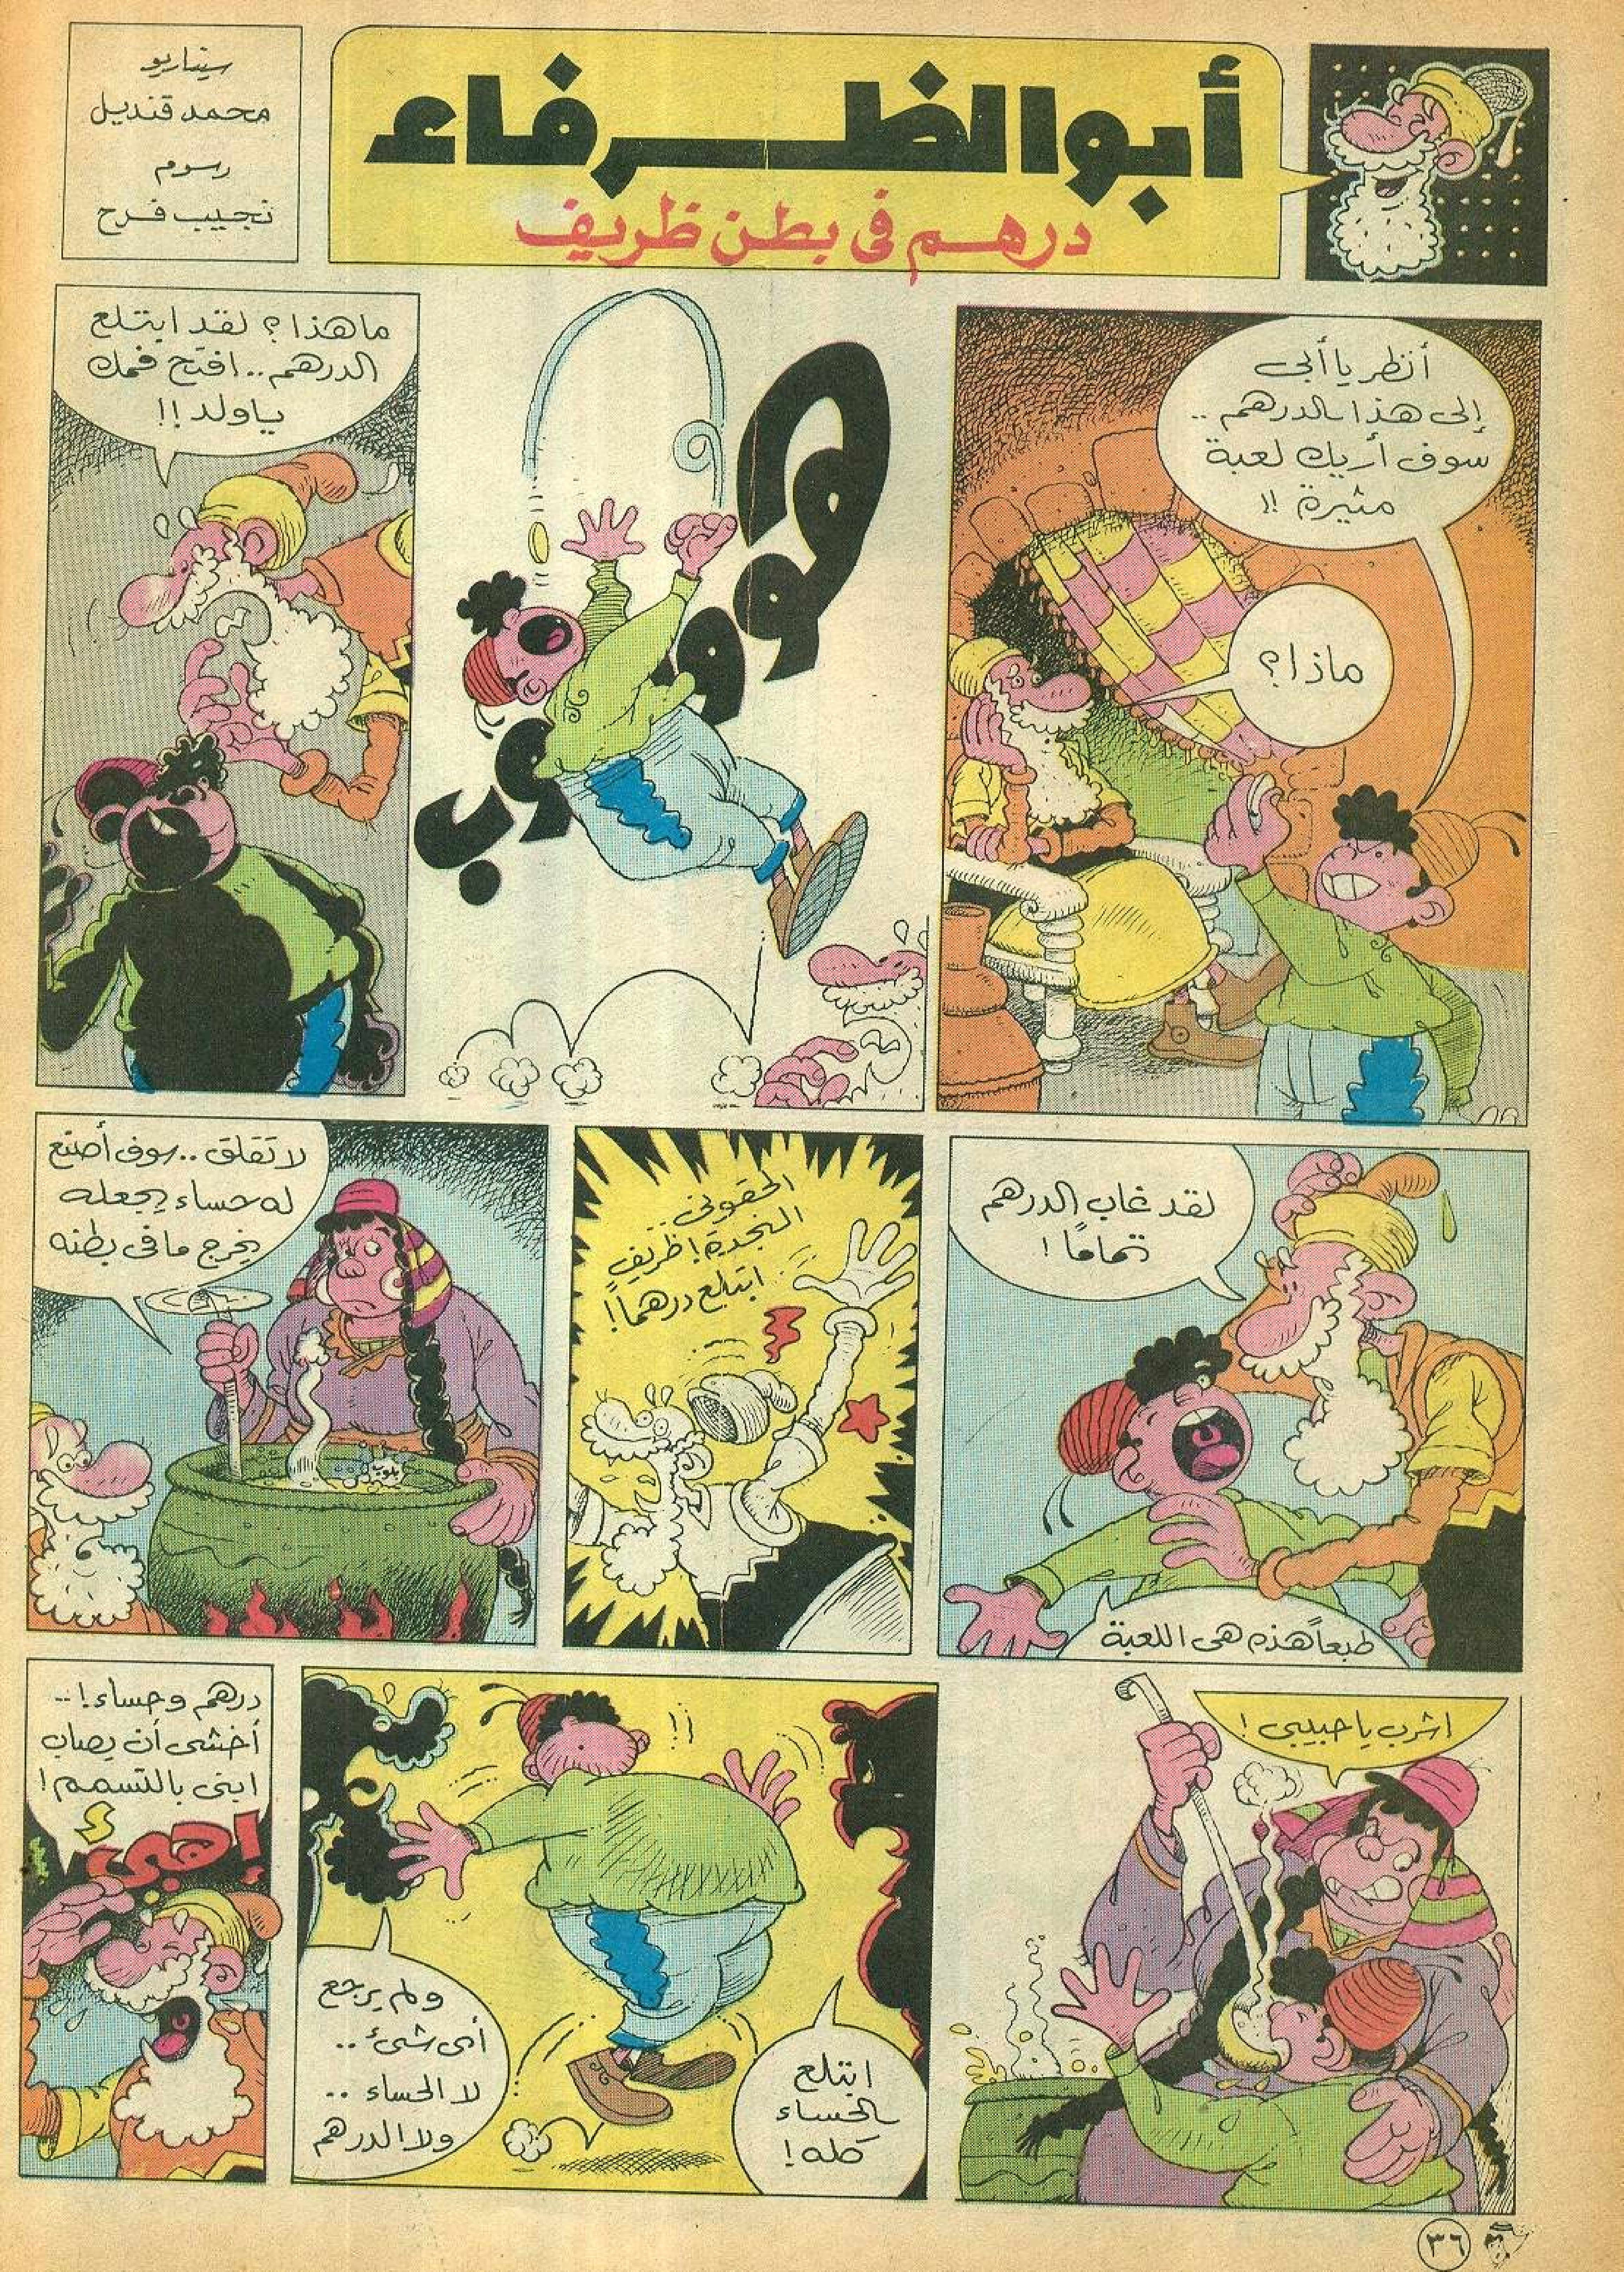 أبو الظرفاء
درهم فى بطن ظريف
سيناريو
محمد قنديل
رسوم
نجيب فرح
أنظر يا أبى
إلى هذا الدرهم ..
سوف أريك لعبة
مثيرة !!
ماذا؟
هووووب
ماهذا؟ لقد ابتلع
الدرهم.. افتح فمك
ياولد!!
لقد غاب الدرهم
تماماً!
طبعاً هذه هى اللعبة
الحقونى..
النجدة! ظريف
ابتلع درهماً!
لا تقلق.. سوف أصنع
له حساء يجعله
يخرج ما فى بطنه
بلوب
اشرب يا حبيبى!
ابتلع
الحساء
كله!
ولم يرجع
أى شئ ..
لا الحساء ..
ولا الدرهم
درهم وحساء! ..
أخشى أن يصاب
ابنى بالتسمم!
إهئ
ئ
٣٦